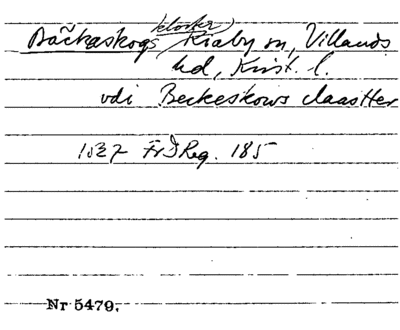 Bäckaskogs kloster, Kiaby sn, Villands
hd, Krist. l.
vdi Beckeskows claastter
1537 Fr I Reg. 185
Nr 5479.